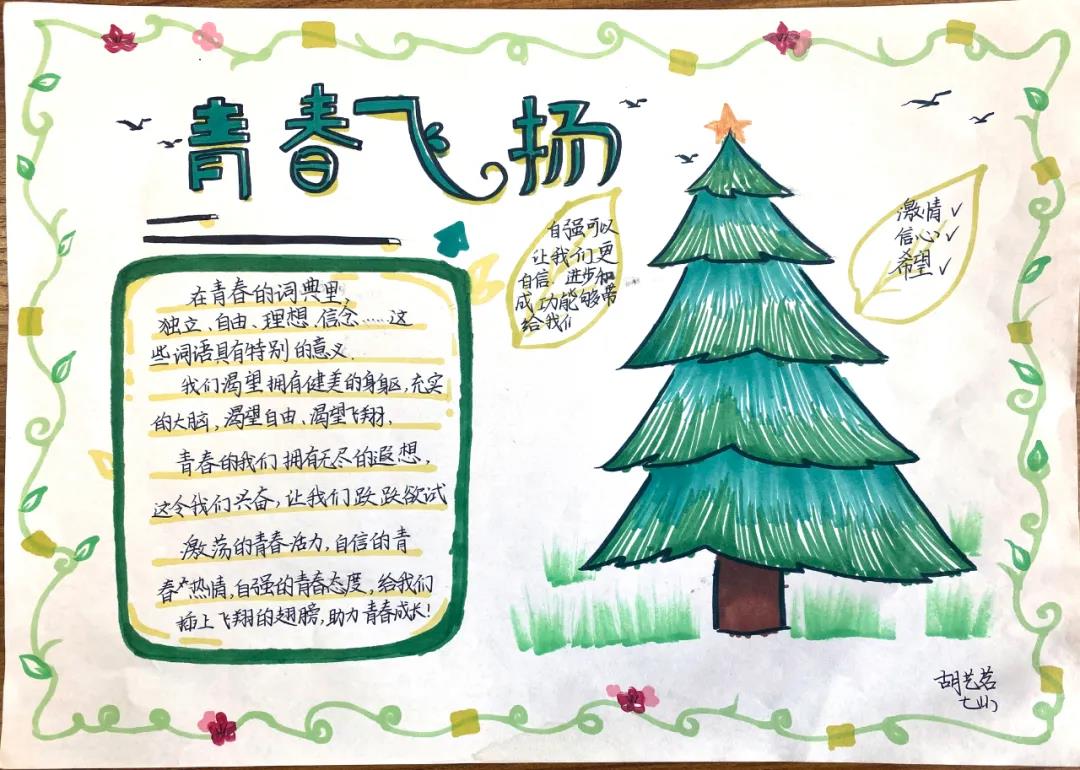 青春飞扬
在青春的词典里,
独立、自由、理想、信念……这
些词语具有特别的意义.
我们渴望拥有健美的身躯,充实
的大脑,渴望自由、渴望飞翔,
青春的我们拥有无尽的遐想,
这令我们兴奋,让我们跃跃欲试
激荡的青春活力,自信的青
春热情,自强的青春态度,给我们
插上飞翔的翅膀,助力青春成长!
自强可以
让我们更
自信.进步和
成功能够带
给我们
激情✓
信心✓
希望✓
胡艺茗